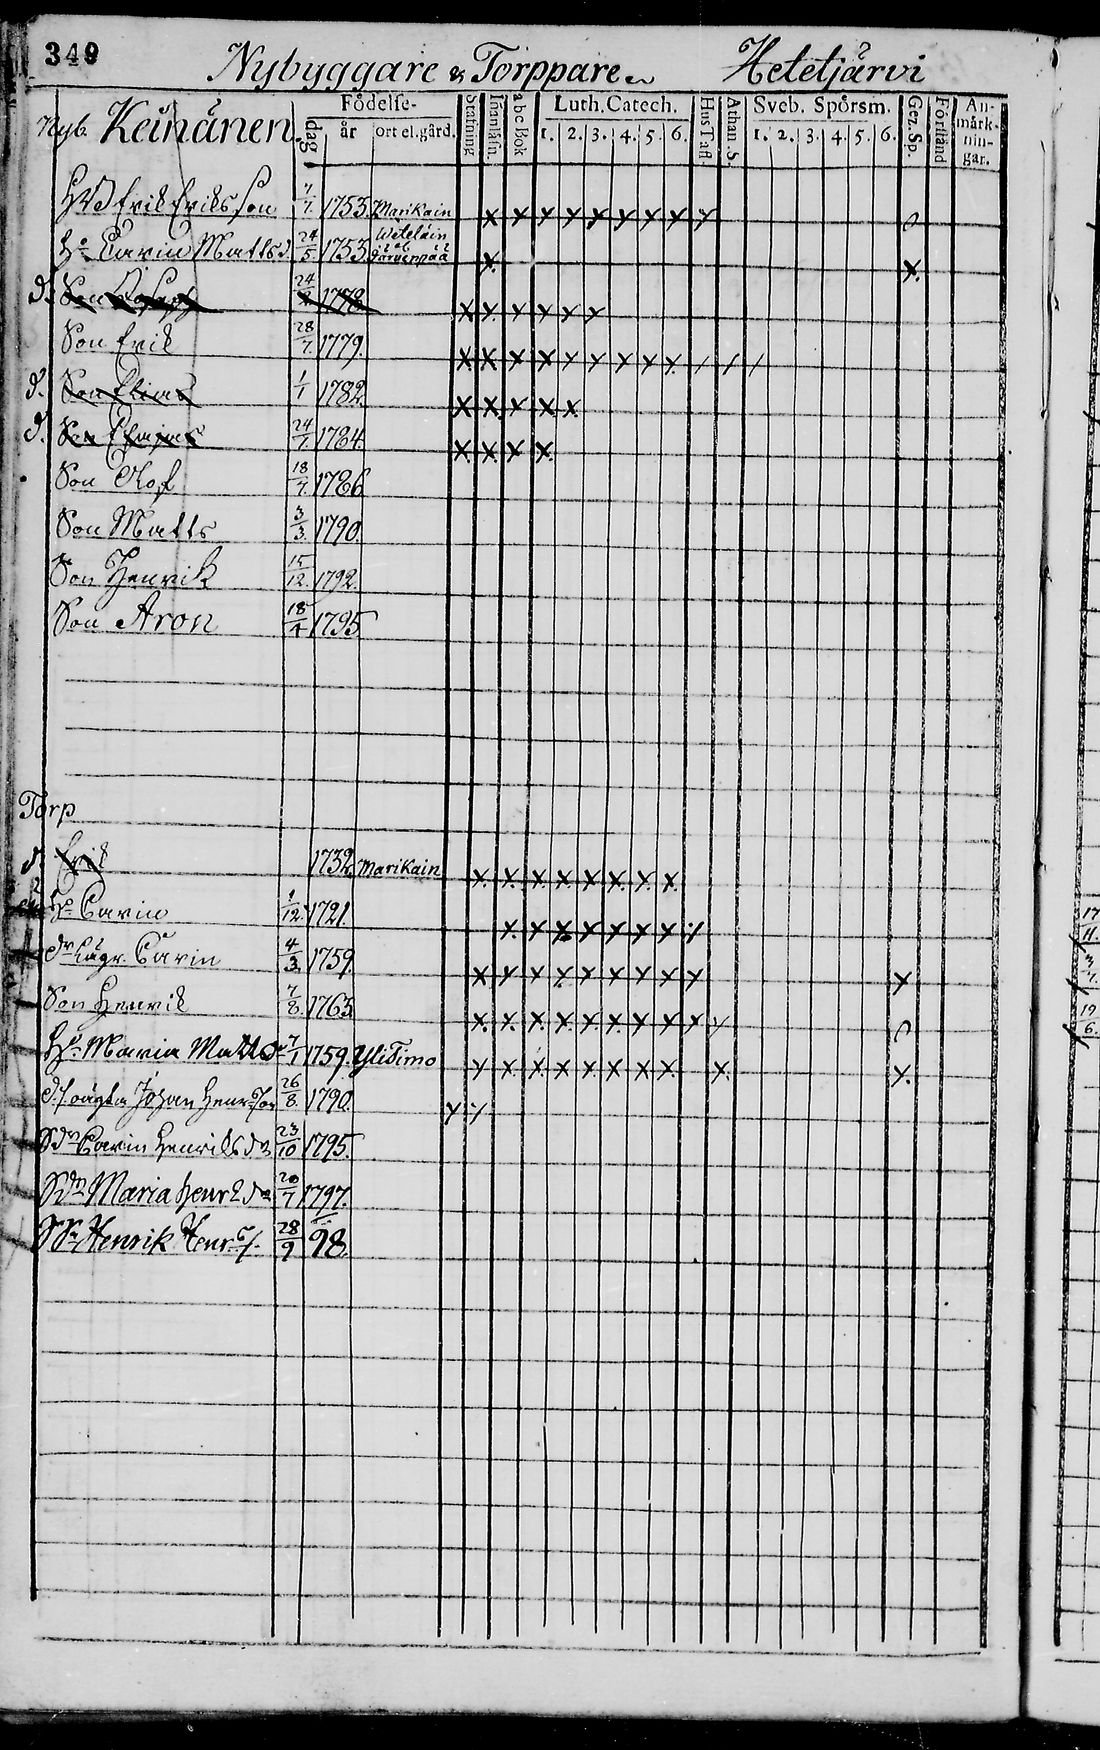 349 Nybyggare & Torppare Hetetjärvi
Nyb. Keinänen dag Födelse- år ort el. gård. Stafning Innanläsn. abc Bok Luth. Catech. 1. 2. 3. 4. 5. 6. Hus Tafl. Athan. S. Sveb. Spörsm. 1. 2. 3. 4. 5. 6. Gez. Sp. Förstånd An-märk-nin-gar.
Erik Eriksson 7/7. 1753. Marikain x x x x x x x x x
Hu Carin Matts d. 24/5. 1753 Weteläin Järvenpää x x.
d. Son Joseph 24 1778 x x x x x x
Son Erik 28/7. 1779. x x x x x x x x x / / /
d. Son Elias 1/1 1782. x x x x x
d. Son 24/7. 1784. x x x x
Son Olof 18/7. 1786
Son Matts 3/3. 1790.
Son Henrik 15/12. 1792.
Son Aron 18/4 1795
Torp
d. Erik 1732. Marikain x x x x x x x x
Hu Carin 1/12. 1721. x x x x x x x x
dr Carin 4/3. 1759. x x x x x x x x x x
Son Henrik 7/8. 1763 x x x x x x x x x x
Hu Maria Matts dr 7/1 1759. YliTimo x x x x x x x x x. x.
oägta Johan Henr. son 26/8. 1790. x x
S dr Carin Henriks dr 23/10 1795.
S dr Maria Henr. dr 20/7 1797.
SS. Henrik Henr. S. 28/9 98.
17/11.
3/7.
19/6.